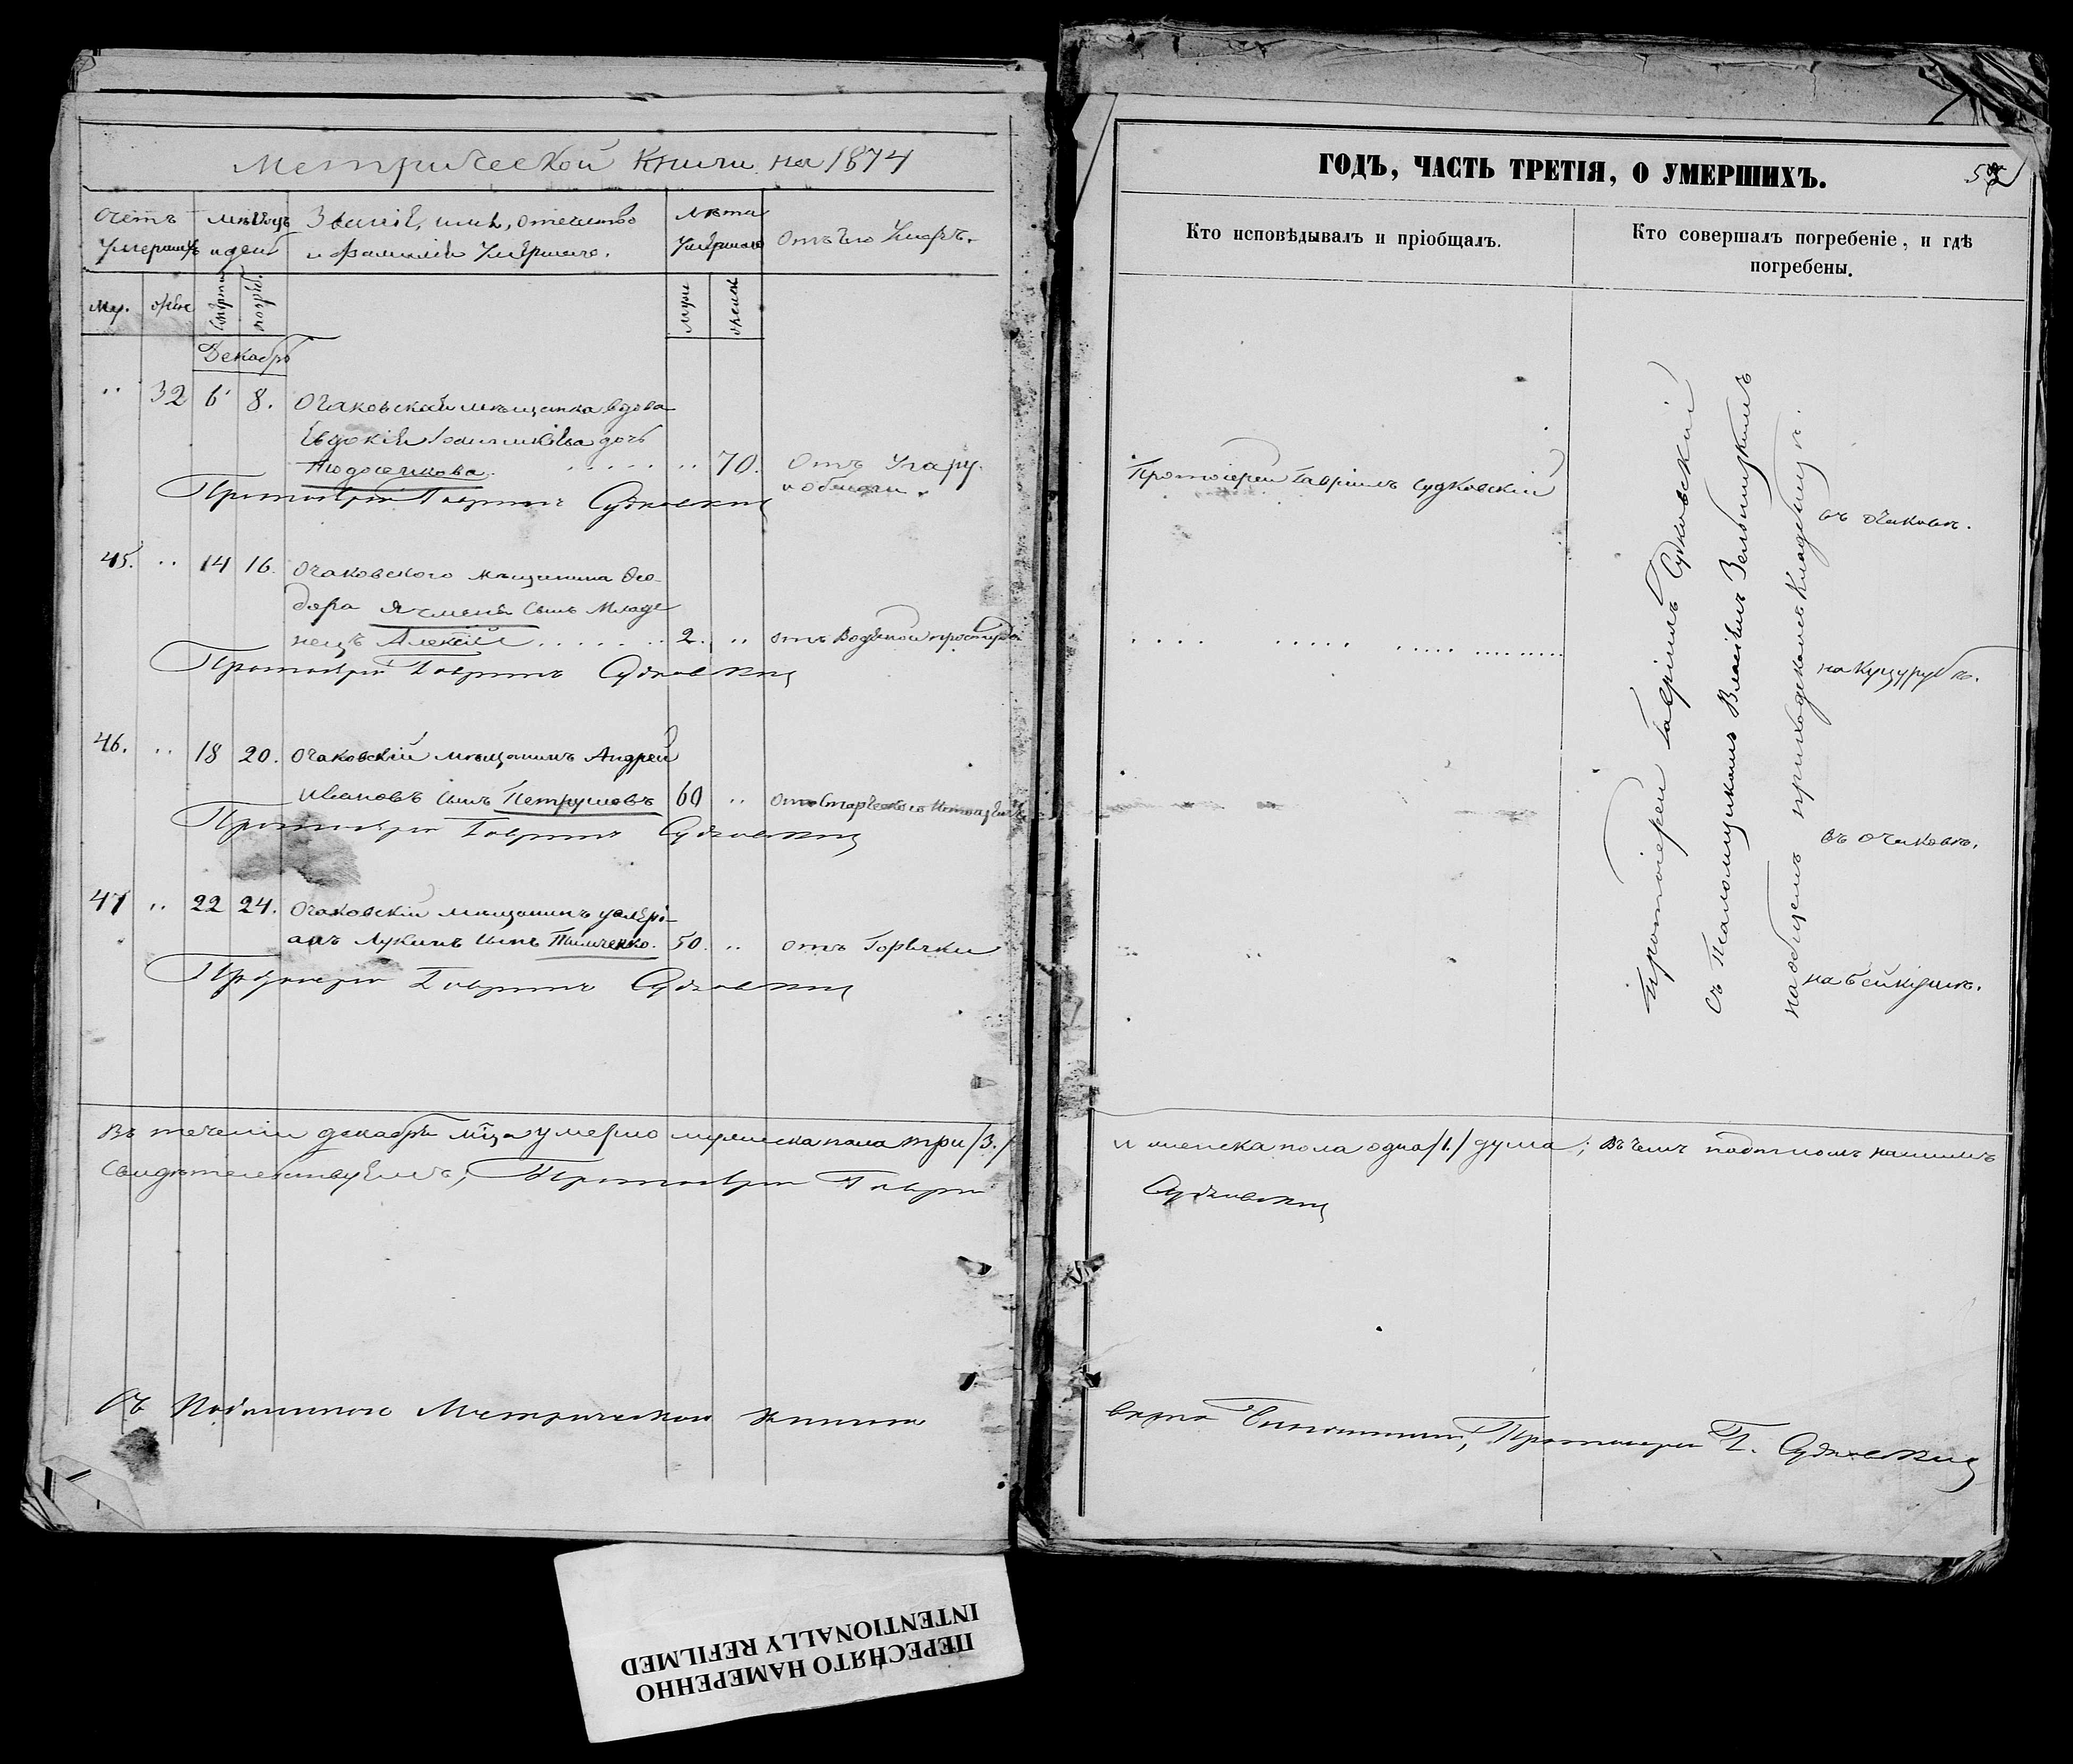 Метрической Книги на 1874
Счетъ умершихъ
мѣсяцъ и день
Званіе, имя, отечество
и фамилія Умершаго.
Лѣта Умершаго
Отъ чего Умеръ.
Му. жен
смерти погреб.
муж женск
Декабрь
.. 32 6 8. Очаковская мѣщанка вдова
Евдокія дочь
.. 70. Отъ Угару.
Протоіерей Гавріилъ Судковскій
45. .. 14 16. Очаковского мѣщанина Ѳео-
дора Ячменя сынъ Младе
нецъ Алексій . . . . . . 2. .. отъ Водяной простуды
Протоіерей Гавріилъ Судковскій
46. .. 18 20. Очаковскій мѣщанинъ Андрей
Ивановъ сынъ Петрушовъ 60 .. отъ Старческого
Протоіерей Гавріилъ Судковскій
47 .. 22 24. Очаковскій мѣщанинъ
Лукинъ сынъ Тимченко. 50. .. отъ Горячки
Протоіерей Гавріилъ Судковскій
Въ теченіи декабря мца умерло мужеска пола три /3./
Свидѣтельствуемъ; Протоіерей Гавріилъ
Съ Подлинною Метрическою книгою
ГОДЪ, ЧАСТЬ ТРЕТІЯ, О УМЕРШИХЪ.
Кто исповѣдывалъ и пріобщалъ.
Кто совершалъ погребеніе, и гдѣ
погребены.
Протоіерей Гавріилъ Судковскій
Протоіерей Гавріилъ Судковскій
съ Псаломщикомъ
на общемъ приходскомъ Кладбищѣ.
въ Очаковѣ.
на Куцурубѣ.
въ Очаковѣ.
на Бейкушѣ.
и женска пола одна /1./ душа; въ чемъ подписомъ нашимъ
Судковскій
вѣрно Протоіерей Г. Судковскій
ПЕРЕСНЯТО НАМЕРЕННО
INTENTIONALLY REFILMED